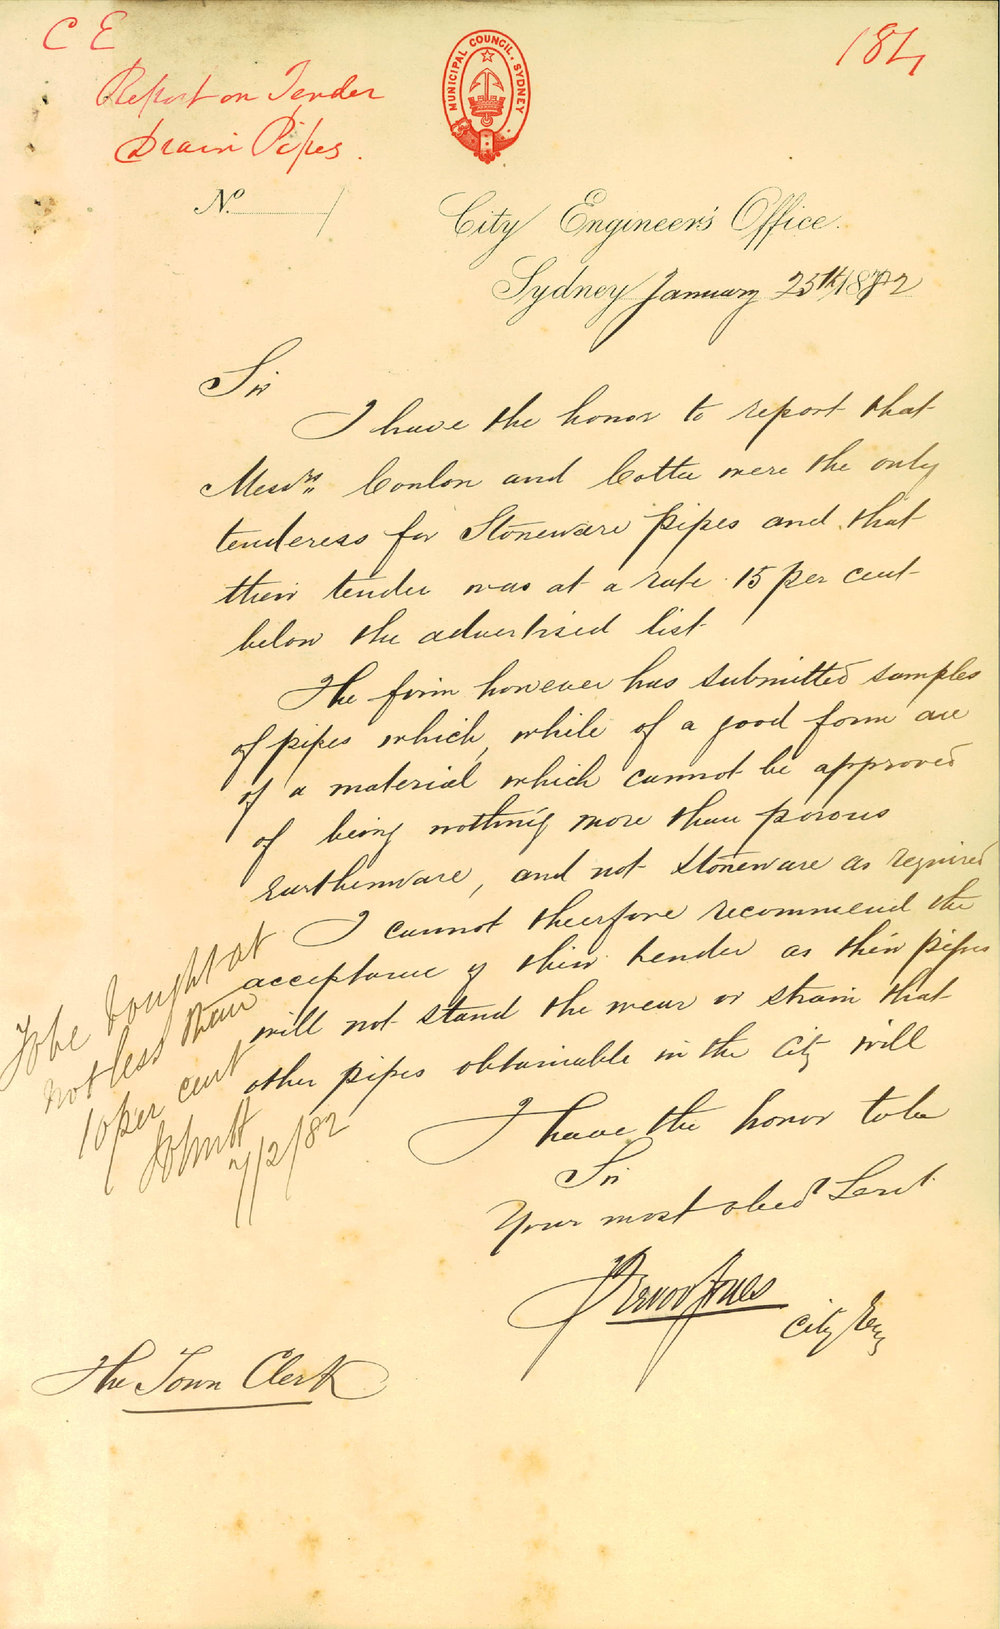 C E
Report on Tender
Drain Pipes.
184
MUNICIPAL COUNCIL, SYDNEY
No.
City Engineer's Office.
Sydney January 25th 1882
Sir
I have the honor to report that
Messrs Conlon and Cotta were the only
tenderess for Stoneware pipes and that
their tender was at a rate 15 per cent
below the advertised list
The firm however has submitted samples
of pipes which, while of a good form are
of a material which cannot be approved
of being nothing more than porous
earthenware, and not stoneware as required
I cannot therefore recommend the
acceptance of their tender as their pipes
will not stand the wear or strain that
other pipes obtainable in the city will
I have the honor to be
Sir
Your most obed Servt
Trevor Jones
City Eng
To be bought at
not less than
10 per cent
7/2/82
The Town Clerk